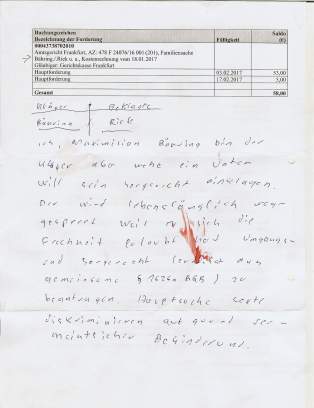 Buchungszeichen
Bezeichnung der Forderung Fälligkeit Saldo (€)
00043738702010
Amtsgericht Frankfurt, AZ: 478 F 24076/16 001 (201), Familiensache
Bühring ./ Riek u. a., Kostenrechnung vom 18.01.2017
Gläubiger: Gerichtskasse Frankfurt
Hauptforderung 03.02.2017 53,00
Hauptforderung 17.02.2017 5,00
Gesamt 58,00
Kläger Beklagte
Riek
ich, Maximilian bin der
Kläger also ein Vater
will sein Sorgerecht einklagen.
Der wird lebenslänglich weg-
gesperrt weil er sich die
Frechheit erlaubt Umgangs-
und Sorgerecht
gemeinsame § 1626a BGB) zu
beantragen. Hauptsache
diskriminieren
Behinderung.